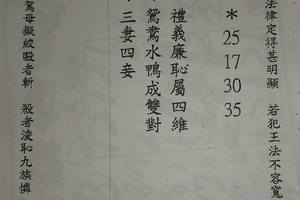 法律定得甚明顯 若犯王法不容寬
* 25 17 30 35
禮義廉恥屬四維
鴛鴦水鴨成雙對
三妻四妾
母擬絞毆者斬 殺者凌恥九族憐